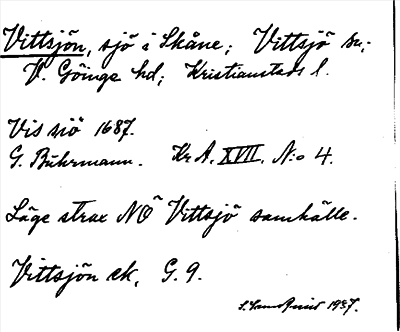 Vittsjön, sjö i Skåne; Vittsjö sn;
V. Göinge hd; Kristianstads l.
Vis siö 1687.
G. Buhrmann. Kr A. XVII. N:o 4.
Läge strax NO Vittsjö samhälle.
Vittsjön ek. G. 9.
1937.